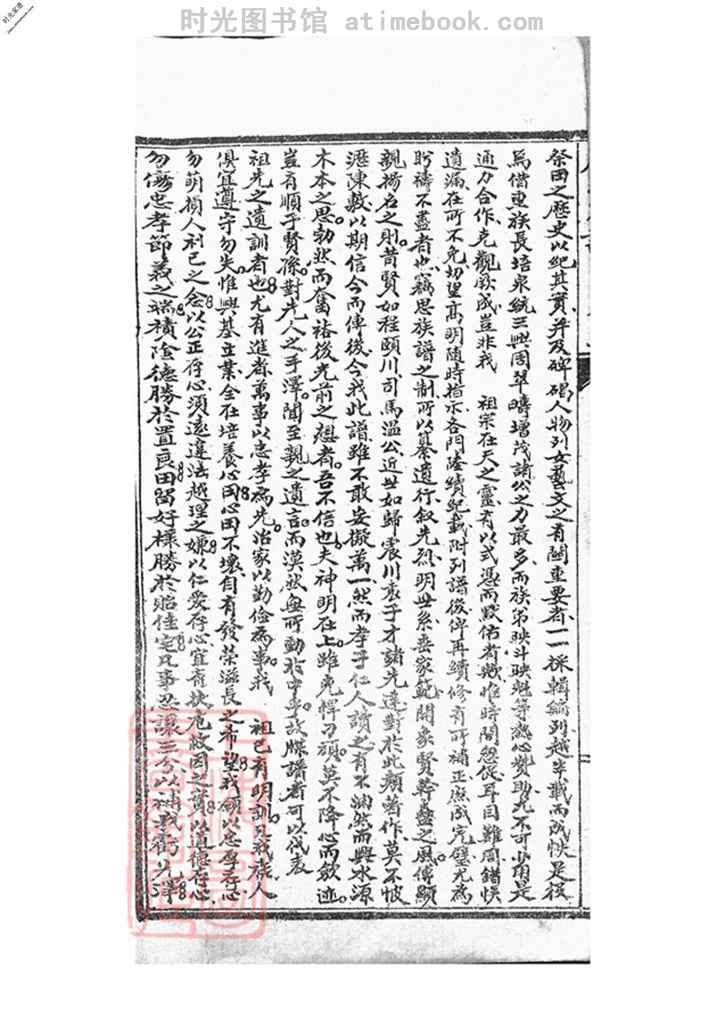 时光图书馆 atimebook.com
时光家谱
祭田之歷史以紀其實并及碑碣人物列女藝文之有關重要者一一採輯編列越半載而成快是役
焉借重族長培泉統三興周翠疇增茂諸公之力最多而族弟映斗映魁等熱心贊助尤不可少用是
通力合作克觀厥成豈非我 祖宗在天之靈有以式憑而默佑者歟惟時間怱促耳目難周錯悞
遺漏在所不免切望高明隨時指示各門陸續紀載附列譜後俾再續修有可補正庶成完璧尤為
盼禱不盡者也竊思族譜之制所以纂遺行叙先烈明世系垂家範闡象賢幹蠱之風傳顯
親揚名之則昔賢如程頤川司馬溫公近世如歸震川袁子才諸先達對於此類著作莫不披
瀝陳數以期信今而傳後今我此譜雖不敢妄擬萬一然而孝子仁人讀之有不油然而興水源
木本之思勃然而奮裕後光前之想者吾不信也夫神明在上雖兇悍刁頑莫不降心而斂迹
豈有順子賢孫對先人之手澤聞至親之遺言而漠然無所動於中乎故牒譜者可以代表
祖先之遺訓者也尤有進者萬事以忠孝為先治家以勤儉為事我 祖已有明訓凡我族人
俱宜遵守勿失惟興基立業全在培養心田心田不壞自有發榮滋長之希望我願以忠厚存心
勿萌損人利己之念以公正存心須遠違法越理之嫌以仁愛存心宜有扶危救困之實以道德存心
勿傷忠孝節義之端積陰德勝於置良田留好樣勝於貽佳宅凡事忍讓三分以補我衢先澤